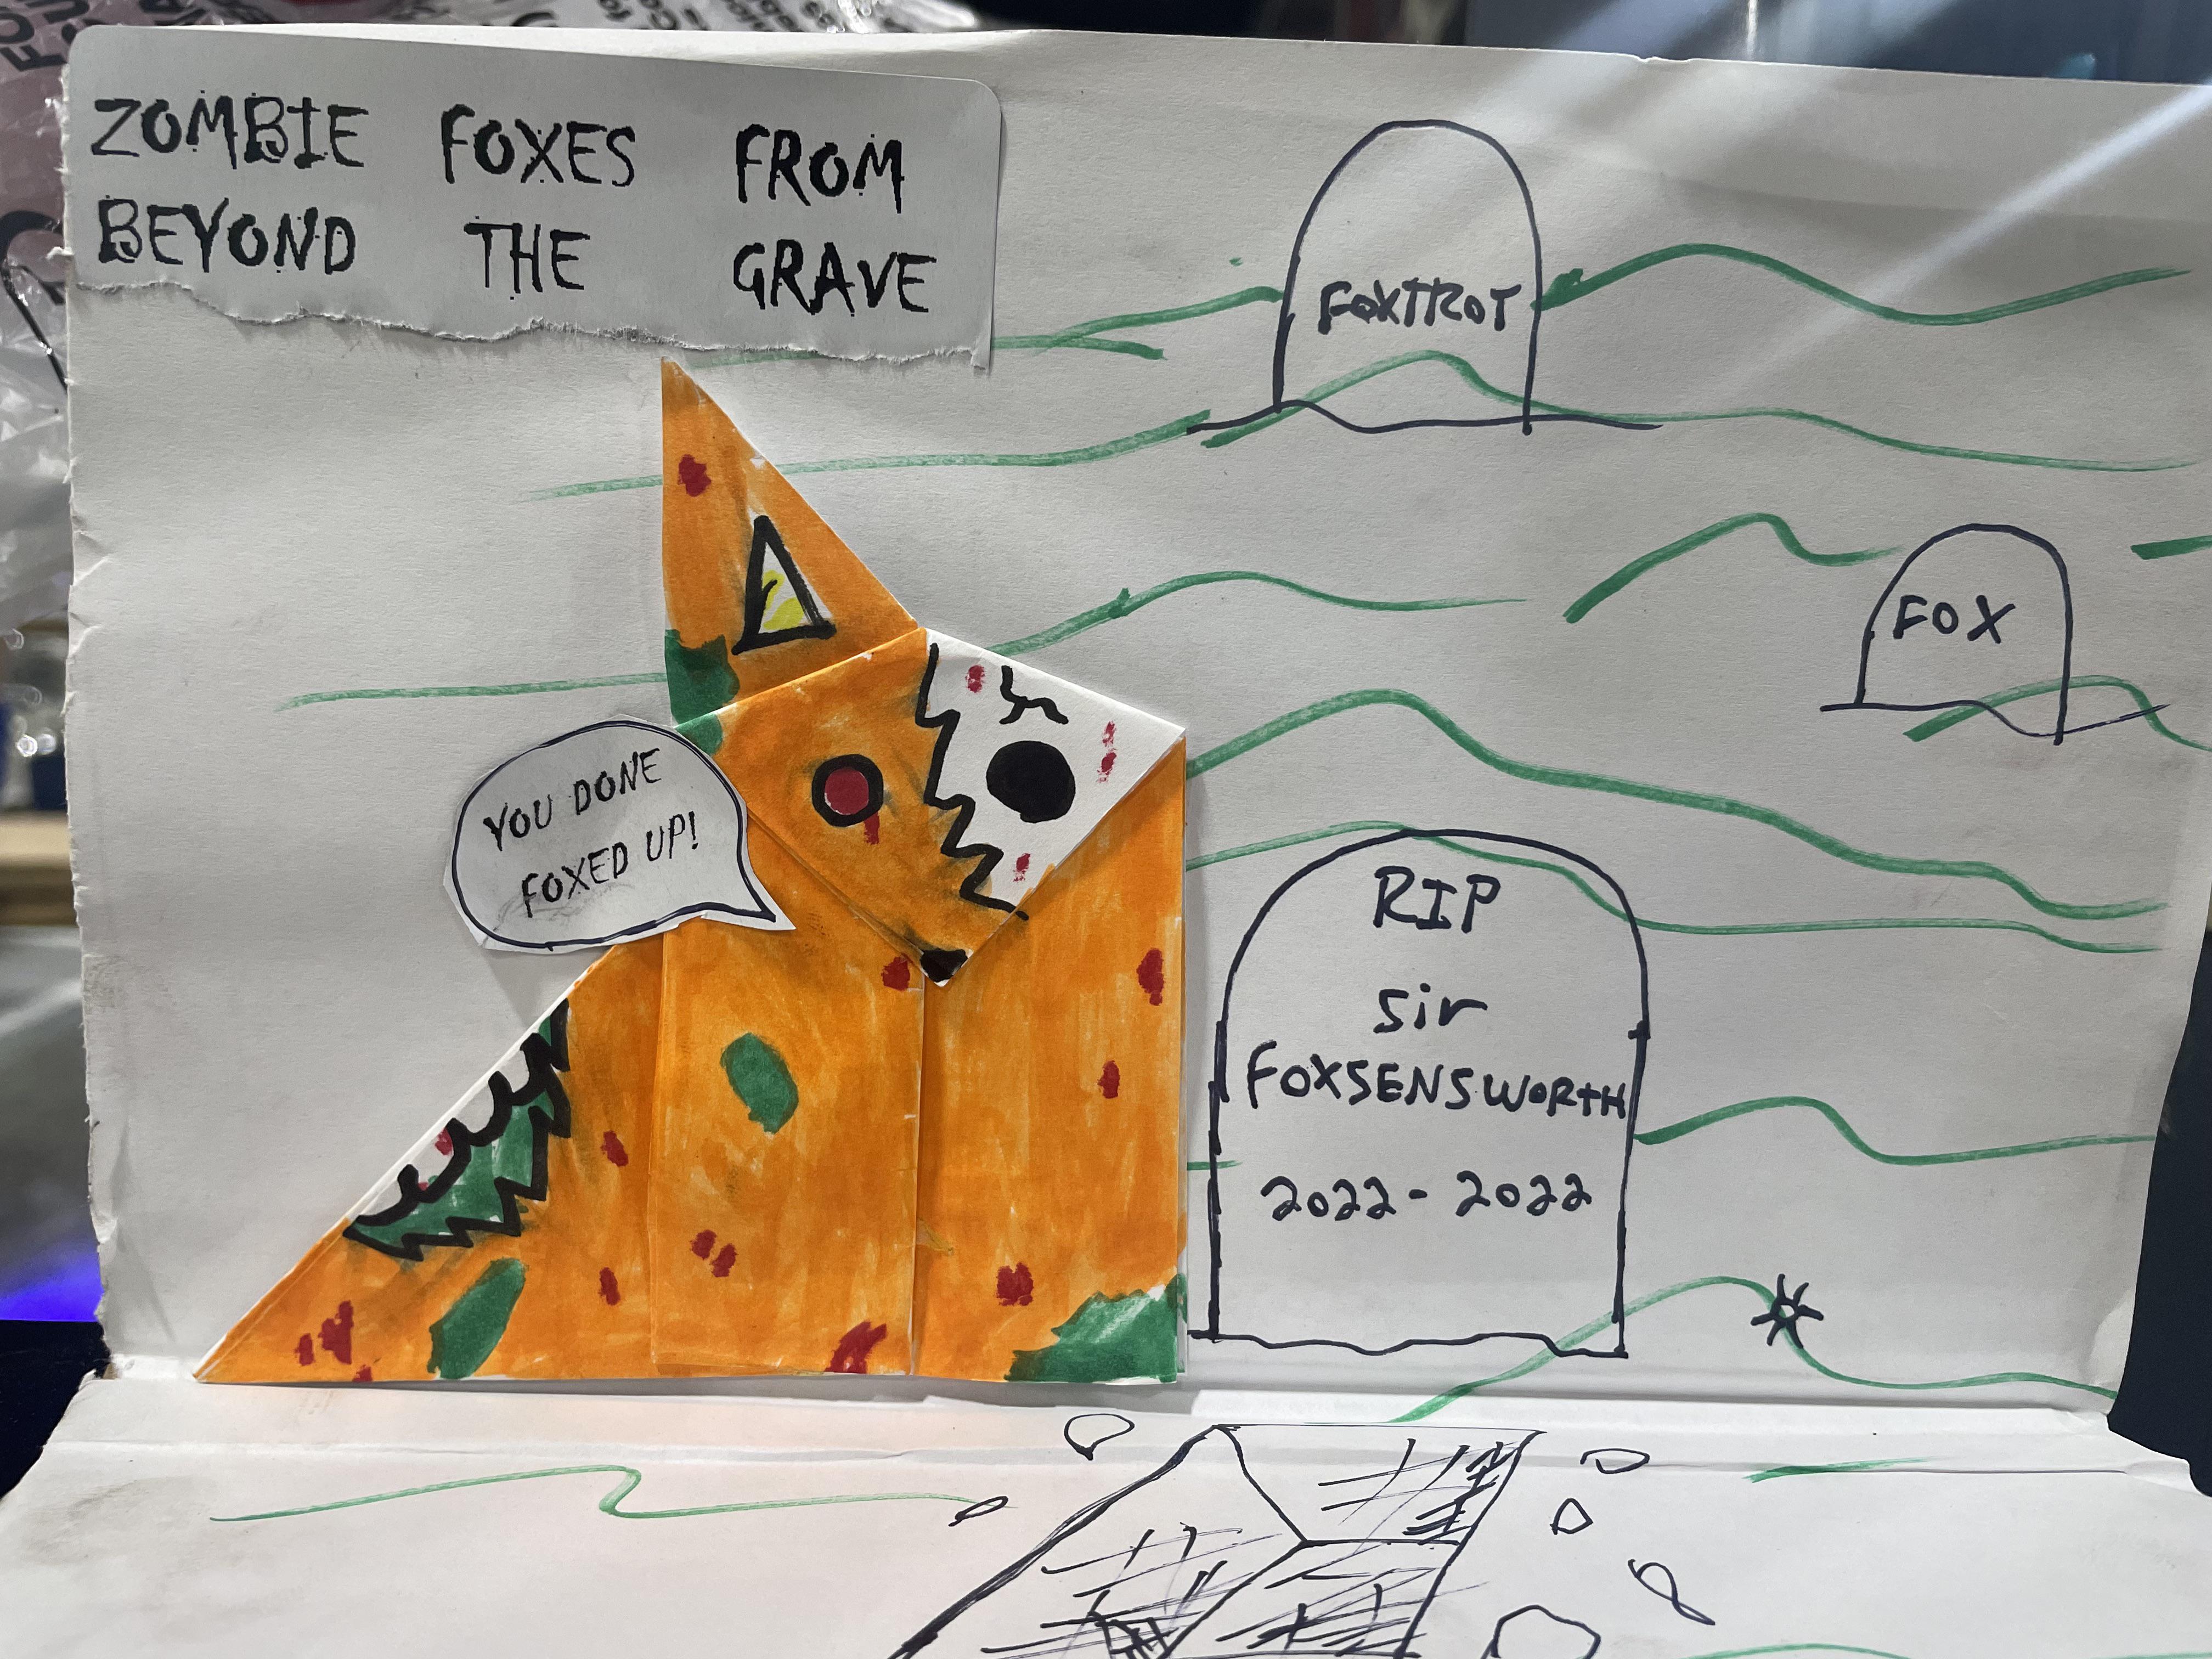 ZOMBIE FOXES FROM
BEYOND THE GRAVE
FOXTROT
FOX
YOU DONE
FOXED UP!
RIP
sir
FOXSENSWORTH
2022-2022